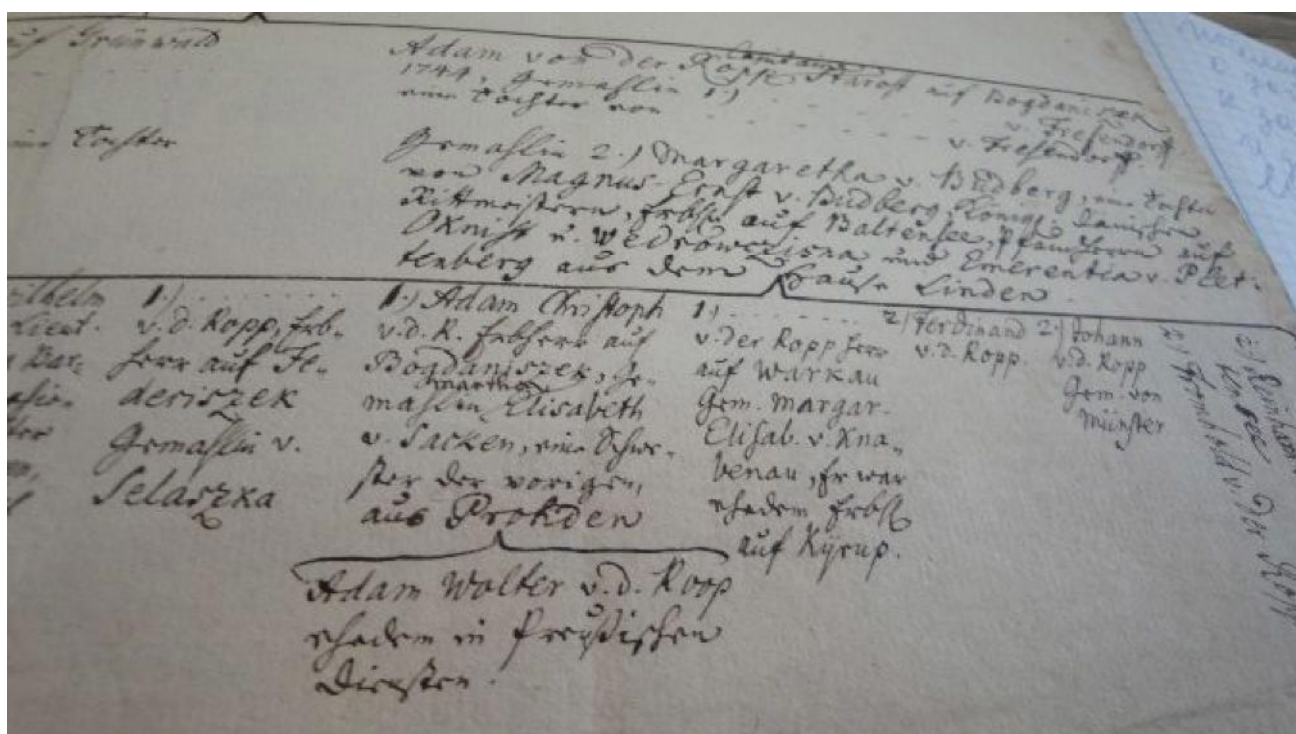 auf Grünwald
Adam von der Ropp, Starost auf Bogdaniszek
1744, Gemahlin 1.) . . . . . . v. Fresendorff
eine Tochter von . . . . . . v. Fresendorff.
eine Tochter
Gemahlin 2.) Margaretha v. Büdberg, eine Tochter
von Magnus Ernst v. Büdberg, Königl. Dänischen
Rittmeistern, Erbh. auf Baltensee, Pfandherrn auf
Oknist u. Wedrowczisna und Emerentia v. Plet-
tenberg aus dem Hause Linden.
Wilhelm
Lieut.
1.) . . . . . .
v. d. Ropp, Erb-
herr auf Fe-
deriszek
Gemahlin v.
Selaszka
1.) Adam Christoph
v. d. R. Erbherr auf
Bogdaniszek, Ge-
mahlin Elisabeth
v. Sacken, eine Schwe-
ster der vorigen,
aus Prokden
1.) . . . . . .
v. der Ropp Herr
auf Warkau
Gem. Margar.
Elisab. v. Kna-
benau, Er war
ehedem Erbh.
auf Kyrup.
2.) Ferdinand
v. d. Ropp.
2.) Johann
v. d. Ropp
Gem. von
Münster
2.) Fromhold v. der Ropp
Adam Wolter v. d. Roop
ehedem in Preußischen
Diensten.